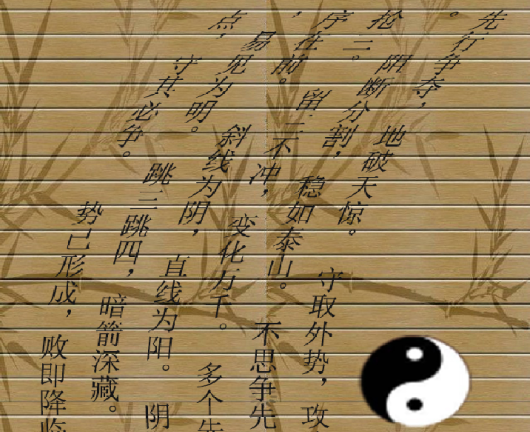 先行争夺，地破天惊。守取外势，攻
。阻断分割，稳如泰山。不思争先
抢三。留三不冲，变化万千。多个先
序在前。斜线为阴，直线为阳。阴
，易见为明。跳三跳四，暗箭深藏。
点，守其必争。势已形成，败即降临